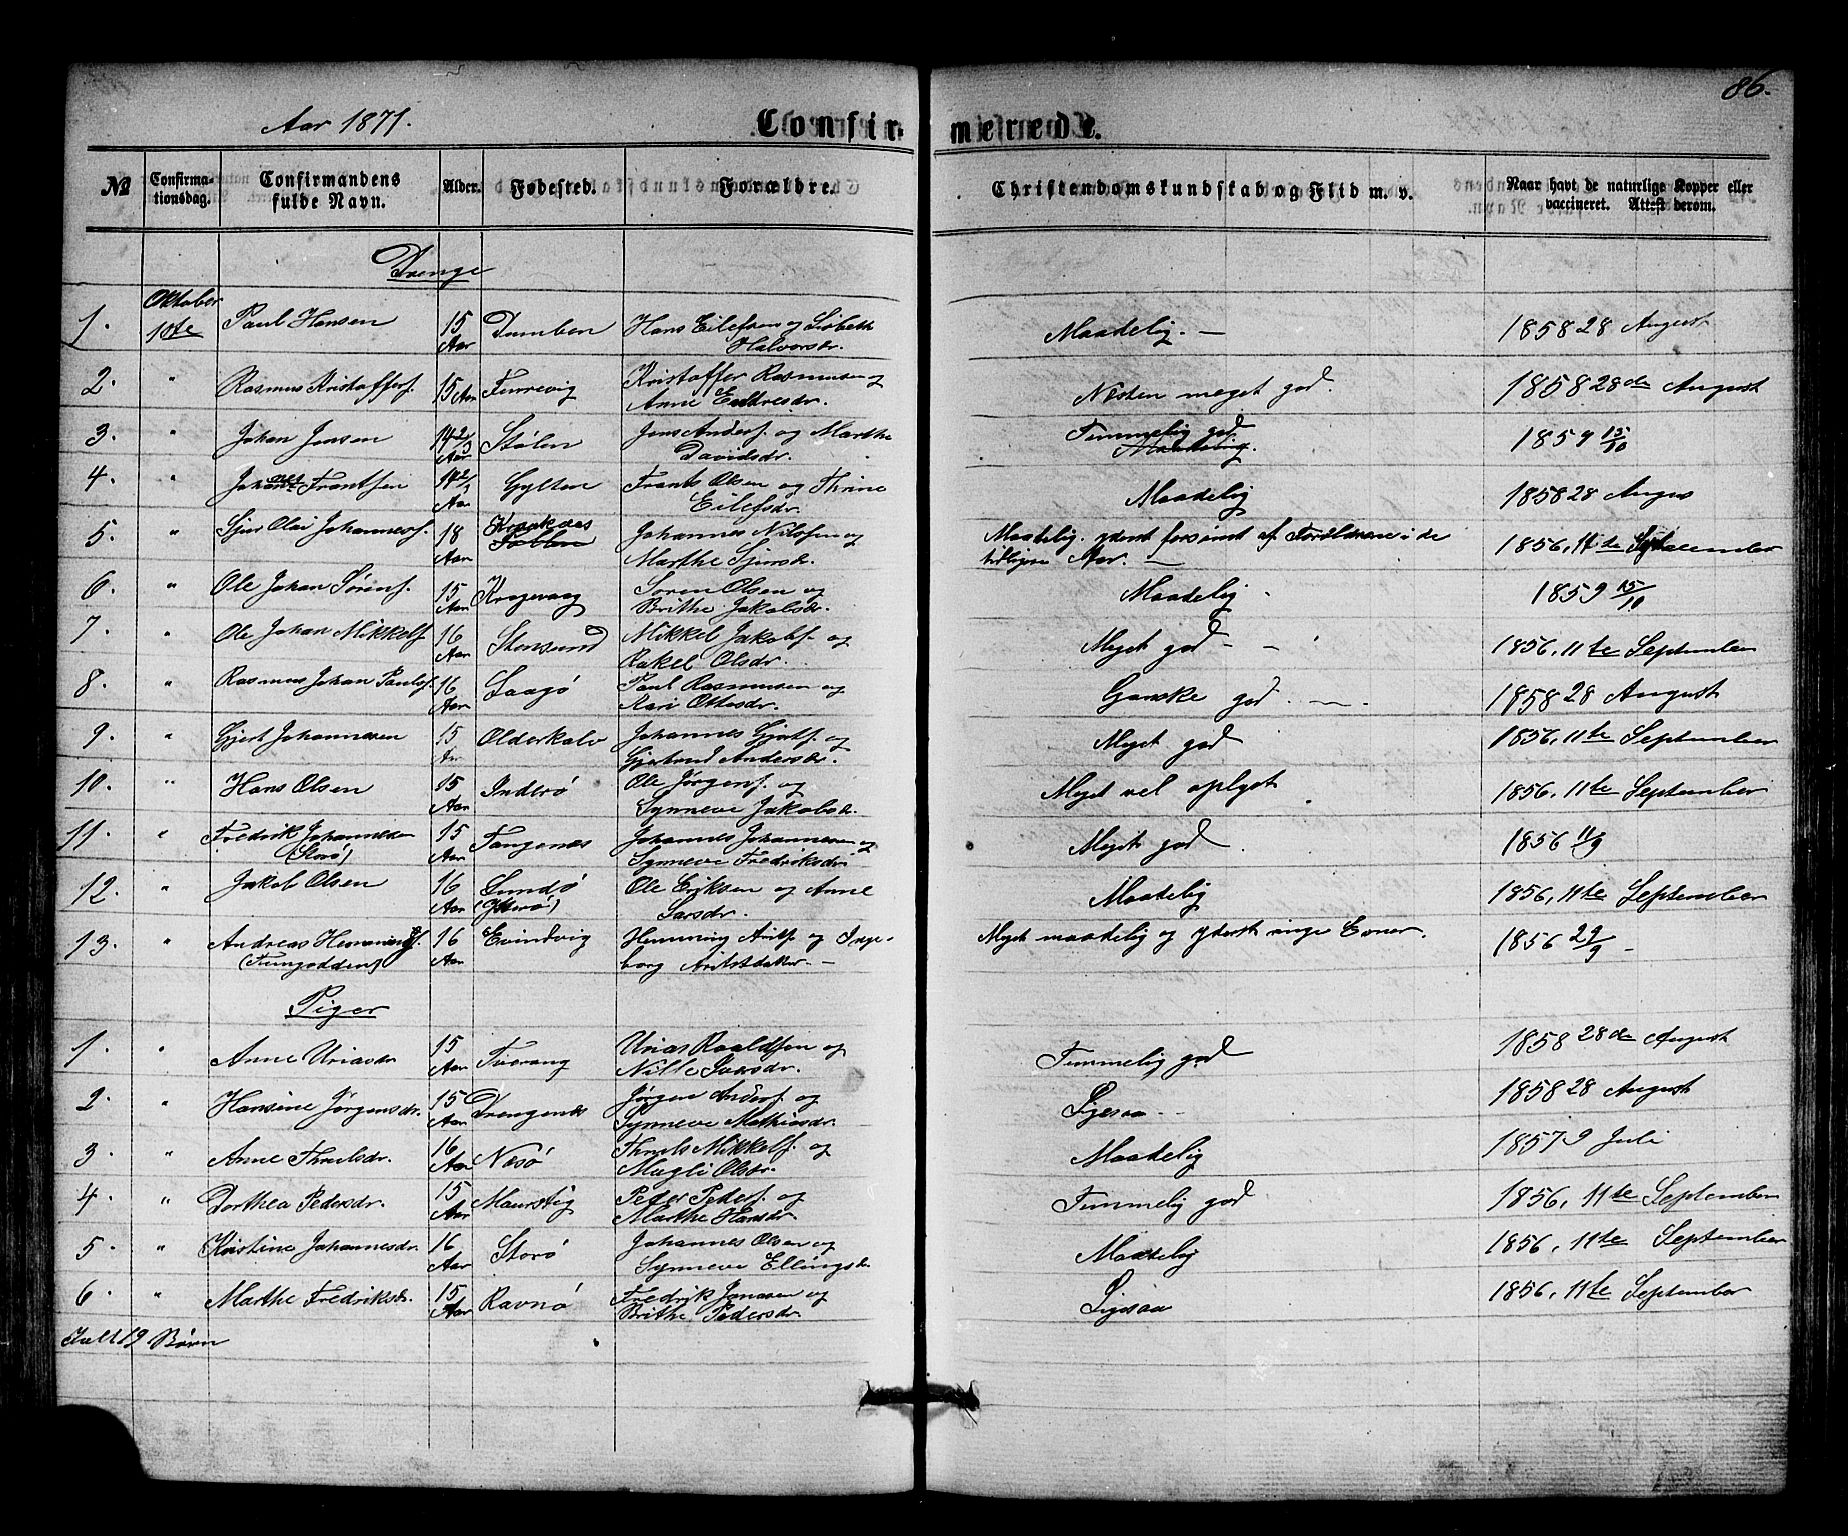 86.
Aar 1871.
Confirmerede.
No
Confirmationsdag.
Confirmandens fulde Navn.
Alder.
Fødested.
Forældre.
Christendomskundskab og Flid m. v.
Naar havt de naturlige Kopper eller vaccineret. Attest derom.
Drenge
1. Oktober 1ste Paul Hansen 15 Aar Dumben Hans Eilefsen og Lisbeth Halvorsdr. Maadelig. — 1858 28 August
2. " Rasmus Kristoffers. 15 Aar Kristoffer Rasmusen og Anne Endresdr. Nesten meget god. 1858 28de August
3. " Johan Jensen 14 2/3 Aar Stølen Jens Anders. og Marthe Davidsdr. Temmelig god Maadelig. 1857 15/10
4. " Johannes Frantsen Aar Gylten Frants Olsen og Thrine Eilefsdr. Maadelig 1858 28 Augus
5. " Sjur Olai Johanness. 18 Aar Johannes Nilssen og Marthe Sjursdr. Maadelig. yderst forsømt af Forældrene i de tidligere Aar. — 1856, 11te September
6. " Ole Johan Sørens. 15 Aar Søren Olsen og Brithe Jakobsdr. Maadelig 1859 15/10
7. " Ole Johan Mikkels. 16 Aar Stensund Mikkel Jakobs. og Rakel Olsdr. Meget god - - 1856, 11te September
8. " Rasmus Johan Pauls. 16 Aar Laagø Paul Rasmusen og Kari Ottosdr. Ganske god. 1858 28 August
9. " Gjert Johannesen 15 Aar Olderkalv Johannes Gjerts. og Gjertrud Andersdr. Meget god 1856, 11te September
10. " Hans Olsen 15 Aar Inderø Ole Jørgens. og Synneve Jakobsdr. Meget vel oplyst 1856, 11te September
11. " Fredrik Johannesen (Storø) 15 Aar Tangenæs Johannes Johannesen og Synneve Fredriksdr. Meget god 1856 11/9
12. " Jakob Olsen 16 Aar Sandø (Ytterø) Ole Eriksen og Anne Larsdr. Maadelig 1856, 11te September
13. " Andreas Hemmings. 16 Aar Evindvig Hemming og Ingeborg — Meget maadelig og yderst ringe Evner. 1856 29/9 —
Piger
1. " Anne Uriasdr 15 Aar Tverang Urias Roaldsen og Nille Ivarsdr. Temmelig god 1858 28de August
2. " Hansine Jørgensdr. 15 Aar Drengenæs Jørgen Anders. og Synneve Mathiasdr. Ligesaa -- 1858 28 August
3. " Anne Thrulsdr. 16 Aar Nesø Thruls Mikkels. og Magli Olsdr. Maadelig 1857 9 Juli
4. " Dorthea Pedersdr. 15 Aar Maurstig Peder Peders. og Marthe Hansdr. Temmelig god 1856, 11te September
5. " Kristine Johannesdr. 16 Aar Storø Johannes Olsen og Synneve Ellingsdr. Maadelig 1856, 11te September
6. " Marthe Fredriksdr. 15 Aar Ravnø Fredrik Jonasen og Brithe Pedersdr. Ligesaa 1856, 11te September
Ialt 19 Børn